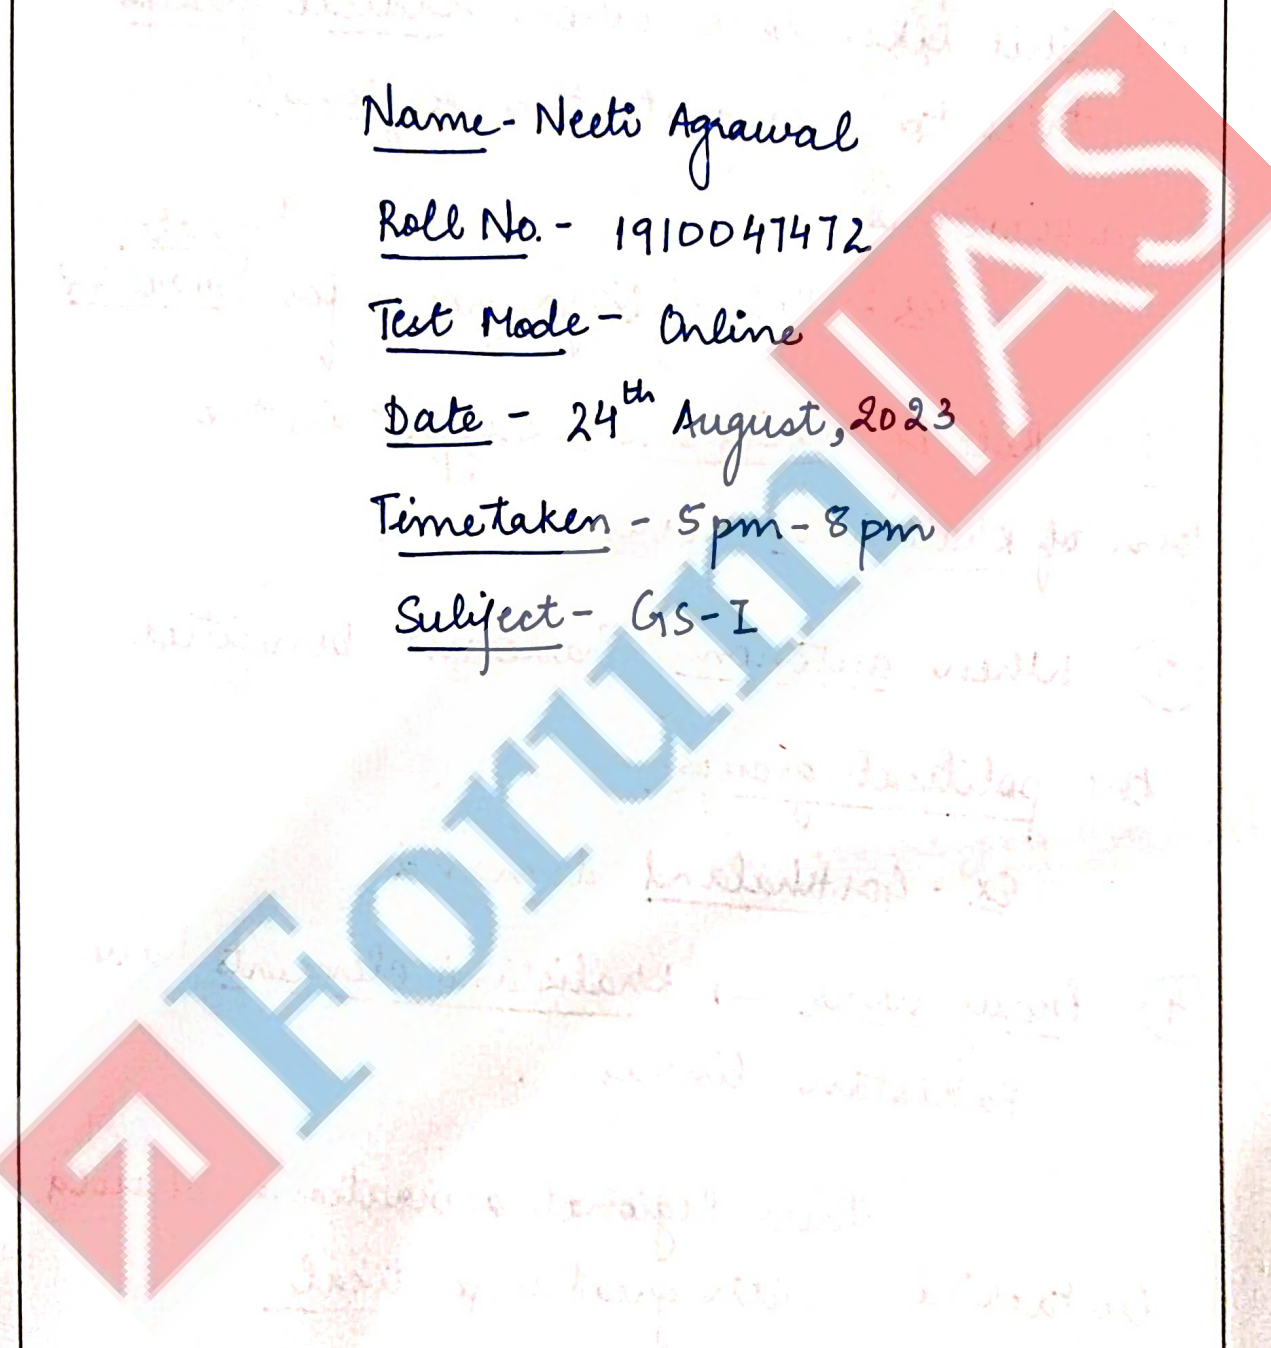 Name - Neeti Agrawal
Roll No. - 1910047472
Test Mode - Online
Date - 24th August, 2023
Timetaken - 5pm - 8pm
Subject - GS-I
ForumIAS